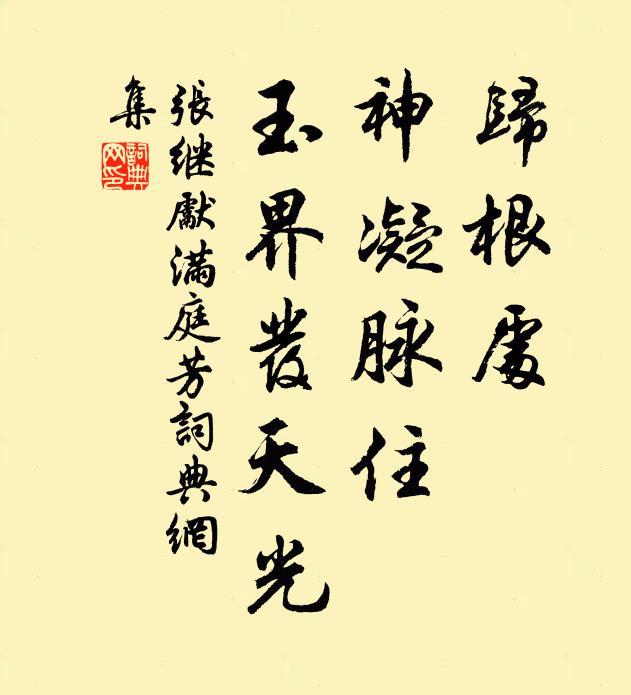 歸根處
神凝脉住
玉界發天光
張继獻滿庭芳詞典網
集
詞典网印